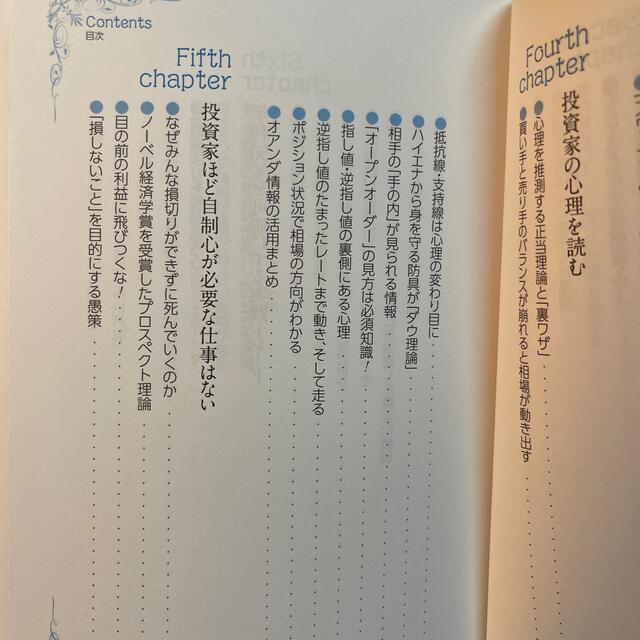 Fourth
chapter
投資家の心理を読む
●心理を推測する正当理論と「裏ワザ」
●買い手と売り手のバランスが崩れると相場が動き出す
Contents
目次
●抵抗線・支持線は心理の変わり目に
●ハイエナから身を守る防具が「ダウ理論」
●相手の「手の内」が見られる情報
●「オープンオーダー」の見方は必須知識！
●指し値・逆指し値の裏側にある心理
●逆指し値のたまったレートまで動き、そして走る
●ポジション状況で相場の方向がわかる
●オアンダ情報の活用まとめ
Fifth
chapter
投資家ほど自制心が必要な仕事はない
●なぜみんな損切りができずに死んでいくのか
●ノーベル経済学賞を受賞したプロスペクト理論
●目の前の利益に飛びつくな！
●「損しないこと」を目的にする愚策